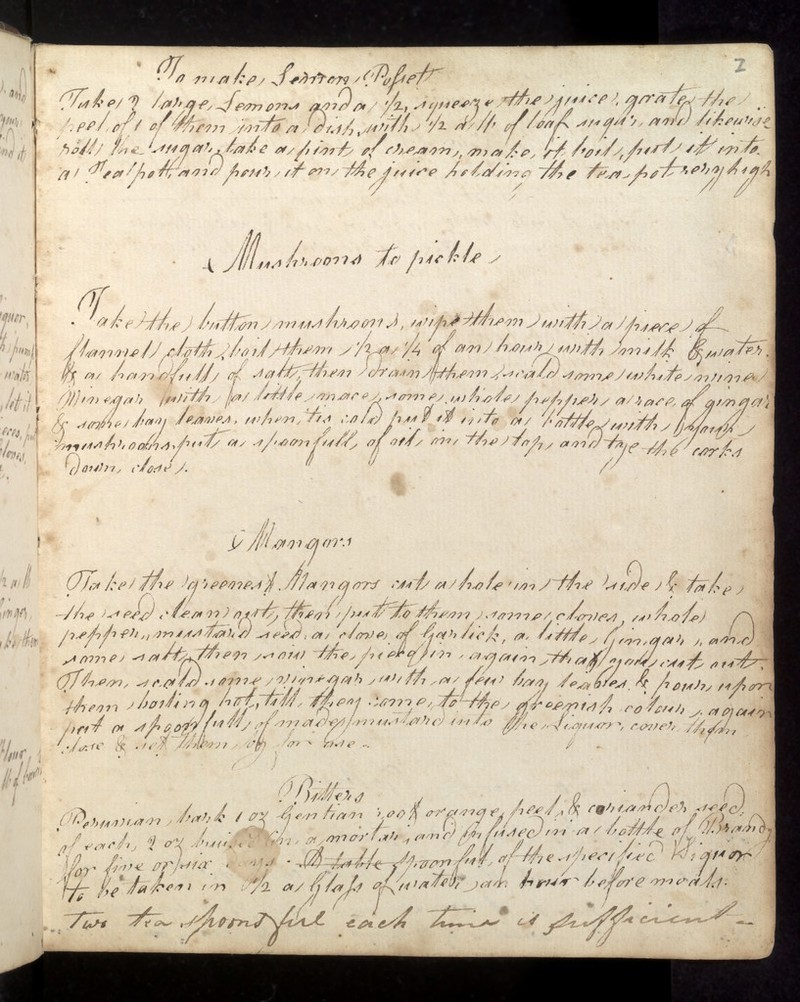 2
To make Lemon Posset
Take 2 large Lemons and a 1/2, squeeze the juice, grate the
peel of 1 of them into a dish with 1/2 a lb of loaf sugar, and likewise
roll the sugar, take a pint of cream, make it boil, put it into
a Tea pott, and pour it on the juice holding the tea pot very high
Mushrooms to pickle
Take the button mushrooms, wipe them with a piece of
flannel cloth, boil them 1/2 a 1/4 of an hour, with milk & water.
& a handfull of salt, then drain them, scald some white wine
Vinegar with a little mace, some whole pepper, a race of gingar
& some bay leaves, when tis cold put it into a bottle with your
mushrooms, put a spoonfull of oil on the top, and tye the corks
down close.
Mangors
Take the greenest Mangors cut a hole in the side & take
the seed clean out, then put to them some cloves, whole
pepper, mustard seed, a clove of Garlick, a little Gingar, and
some salt, then sow the piece in again that you cut out.
Then scald some vinegar with a few bay leaves & pour upon
them boiling hot, till they come to the greenish colour again
put a spoonfull of made mustard into the Liquor, cover them
close & set them by for use -
Bitters
Peruvian bark 1 oz Gentian root orange peel, & coriander seed
of each, 2 oz bruised in a mortar, and infused in a bottle of Brandy
for five or six days - A table spoonful of the specified Liquor
to be taken in 1/2 a Glass of water, an hour before meals.
Two tea spoonsful each time is sufficient -